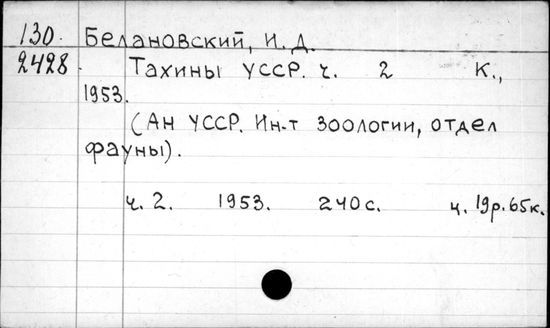 130. Белановский, И. Д.
2428. Тахины УССР. ч. 2 К.,
1953.
(АН УССР. Ин-т зоологии, отдел
фауны).
ч. 2. 1953. 240 с. ц. 19р. 65к.